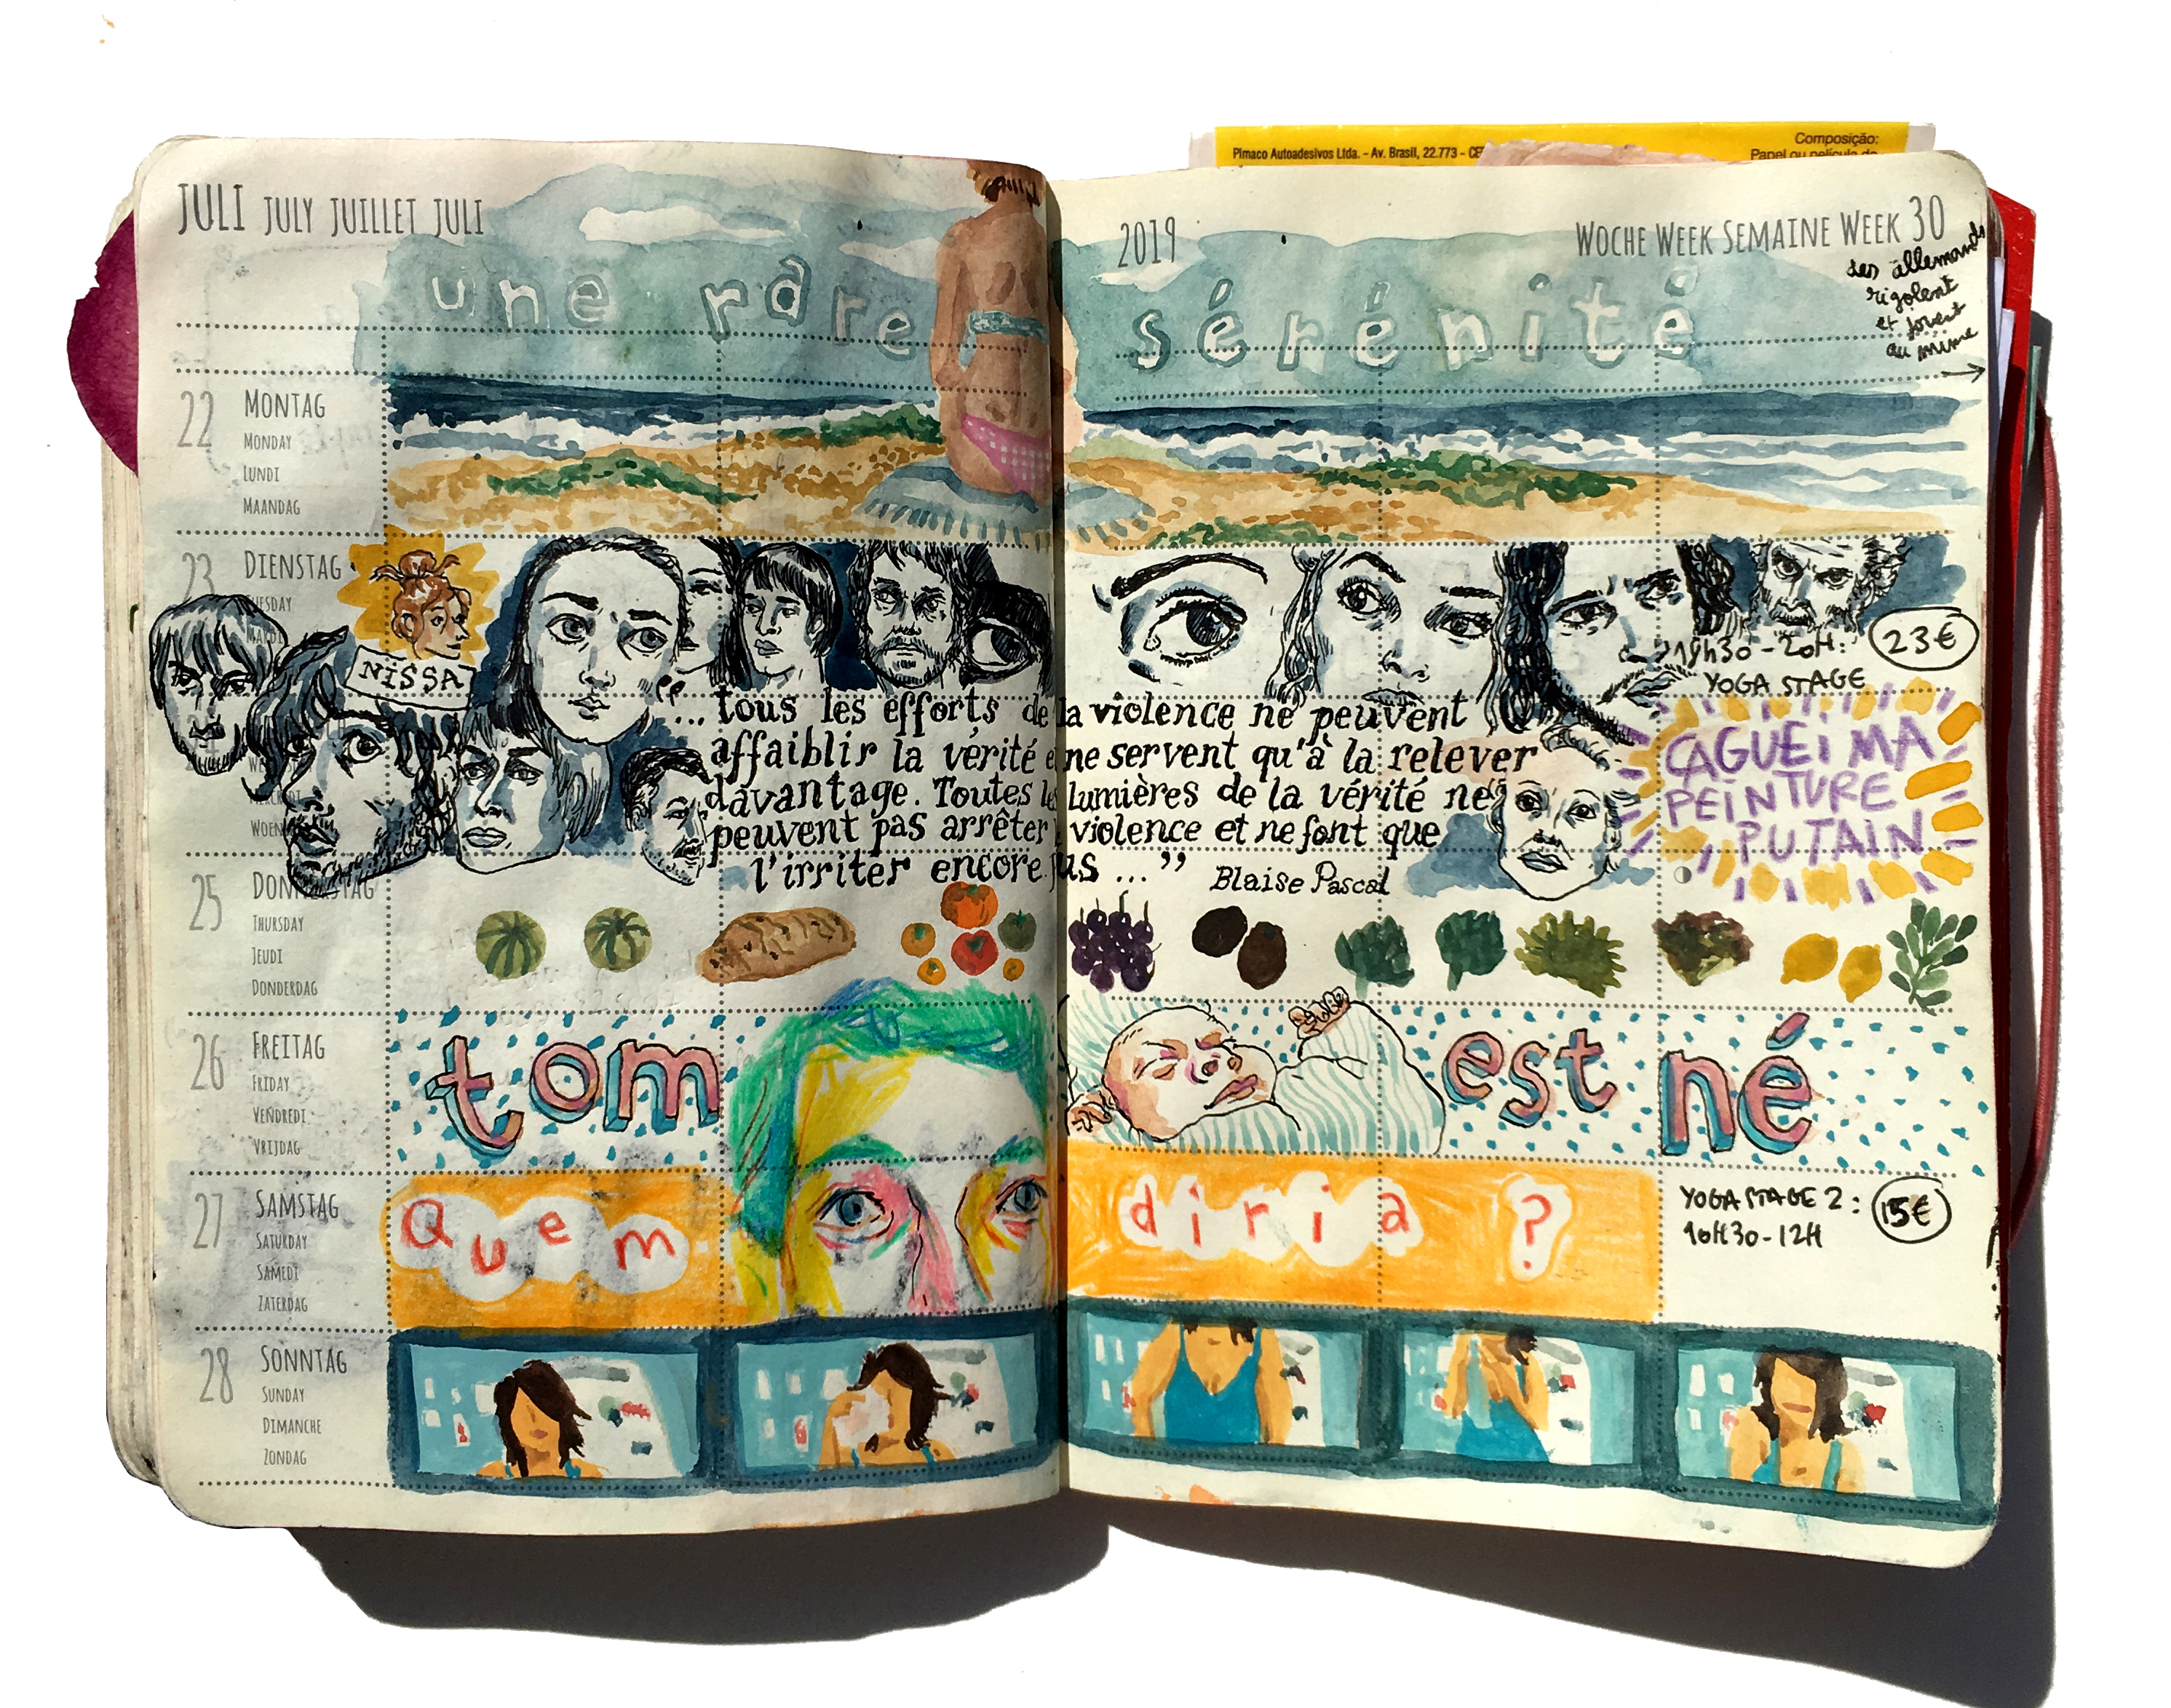 Pimaco Autoadesivos Ltda. - Av. Brasil, 22.773 - CE
Composição:
Papel ou película de
JULI JULY JUILLET JULI
2019
WOCHE WEEK SEMAINE WEEK 30
des allemands
rigolent
et jouent
au mime
une rare sérénité
22 MONTAG
MONDAY
LUNDI
MAANDAG
23 DIENSTAG
TUESDAY
MARDI
NISSA
19h30 - 20H: 23€
YOGA STAGE
"... tous les efforts de la violence ne peuvent
affaiblir la vérité et ne servent qu'à la relever
davantage. Toutes les lumières de la vérité ne
peuvent pas arrêter violence et ne font que
l'irriter encore plus ..." Blaise Pascal
CAGUEI MA
PEINTURE
PUTAIN
25 DONNERSTAG
THURSDAY
JEUDI
DONDERDAG
26 FREITAG
FRIDAY
VENDREDI
VRIJDAG
tom est né
27 SAMSTAG
SATURDAY
SAMEDI
ZATERDAG
Quem diria ?
YOGA STAGE 2: 15€
10H30-12H
28 SONNTAG
SUNDAY
DIMANCHE
ZONDAG